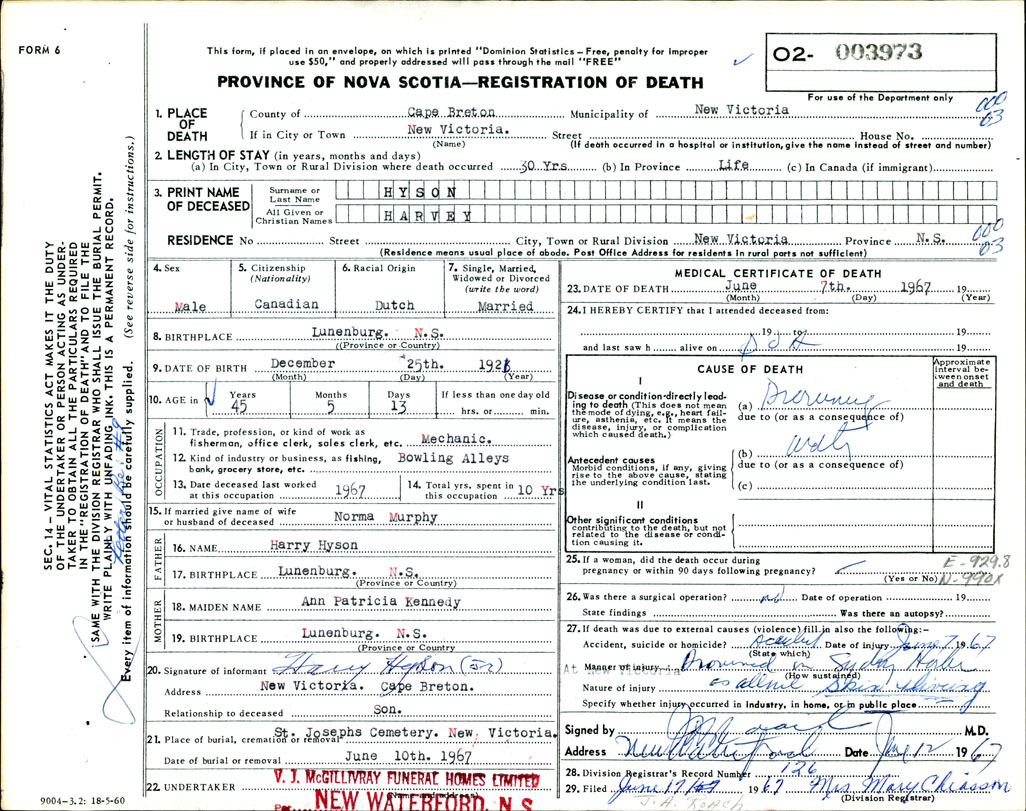 FORM 6
This form, if placed in an envelope, on which is printed "Dominion Statistics – Free, penalty for improper
use $50," and properly addressed will pass through the mail "FREE"
PROVINCE OF NOVA SCOTIA—REGISTRATION OF DEATH
O2- 003973
For use of the Department only
1. PLACE OF DEATH
County of Cape Breton Municipality of New Victoria 000 03
If in City or Town New Victoria. Street House No.
(Name) (If death occurred in a hospital or institution, give the name instead of street and number)
2. LENGTH OF STAY (in years, months and days)
(a) In City, Town or Rural Division where death occurred 30 Yrs (b) In Province Life (c) In Canada (if immigrant)
3. PRINT NAME OF DECEASED
Surname or Last Name HYSON
All Given or Christian Names HARVEY
RESIDENCE No Street City, Town or Rural Division New Victoria Province N.S. 000 03
(Residence means usual place of abode. Post Office Address for residents in rural parts not sufficient)
4. Sex Male
5. Citizenship (Nationality) Canadian
6. Racial Origin Dutch
7. Single, Married, Widowed or Divorced (write the word) Married
8. BIRTHPLACE Lunenburg. N.S.
((Province or Country)
9. DATE OF BIRTH December 25th. 1921
(Month) (Day) (Year)
10. AGE in Years 45 Months 5 Days 13 If less than one day old hrs. or min.
OCCUPATION
11. Trade, profession, or kind of work as
fisherman, office clerk, sales clerk, etc. Mechanic.
12. Kind of industry or business, as fishing,
bank, grocery store, etc. Bowling Alleys
13. Date deceased last worked
at this occupation 1967
14. Total yrs. spent in
this occupation 10 Yrs
15. If married give name of wife
or husband of deceased Norma Murphy
FATHER
16. NAME Harry Hyson
17. BIRTHPLACE Lunenburg. N.S.
(Province or Country)
MOTHER
18. MAIDEN NAME Ann Patricia Kennedy
19. BIRTHPLACE Lunenburg. N.S.
(Province or Country
20. Signature of informant Harry Hyson
Address New Victoria. Cape Breton.
Relationship to deceased Son.
21. Place of burial, cremation or removal St. Josephs Cemetery. New Victoria.
Date of burial or removal June 10th. 1967
22. UNDERTAKER V. J. McGILLIVRAY FUNERAL HOMES LIMITED
Per NEW WATERFORD, N.S.
MEDICAL CERTIFICATE OF DEATH
23. DATE OF DEATH June 7th. 1967 19
(Month) (Day) (Year)
24. I HEREBY CERTIFY that I attended deceased from:
19 to 19
and last saw h alive on 19
CAUSE OF DEATH
Approximate interval between onset and death
I
Disease or condition directly leading to death (This does not mean
the mode of dying, e.g., heart failure, asthenia, etc. It means the
disease, injury, or complication
which caused death.)
(a) Drowning
due to (or as a consequence of)
Antecedent causes
Morbid conditions, if any, giving
rise to the above cause, stating
the underlying condition last.
(b)
due to (or as a consequence of)
(c)
II
Other significant conditions
contributing to the death, but not
related to the disease or condition causing it.
25. If a woman, did the death occur during
pregnancy or within 90 days following pregnancy? (Yes or No)
E-929.8
N-990X
26. Was there a surgical operation? no Date of operation 19
State findings Was there an autopsy?
27. If death was due to external causes (violence) fill in also the following:–
Accident, suicide or homicide? Accident Date of injury June 7 1967
(State which)
At New Victoria
Manner of injury Drowned in Sydney Harbor
(How sustained)
Nature of injury skin diving
Specify whether injury occurred in Industry, in home, or in public place
Signed by M.D.
Address New Waterford Date June 12 1967
28. Division Registrar's Record Number 126
29. Filed June 1967 Mrs. Mary Chiasson
(Division Registrar)
SEC. 14 – VITAL STATISTICS ACT MAKES IT THE DUTY
OF THE UNDERTAKER OR PERSON ACTING AS UNDER-
TAKER TO OBTAIN ALL THE PARTICULARS REQUIRED
IN THE "REGISTRATION OF DEATH" AND TO FILE THE
SAME WITH THE DIVISION REGISTRAR WHO SHALL ISSUE THE BURIAL PERMIT.
WRITE PLAINLY WITH UNFADING INK. THIS IS A PERMANENT RECORD.
Every item of information should be carefully supplied. (See reverse side for instructions.)
9004-3.2: 18-5-60